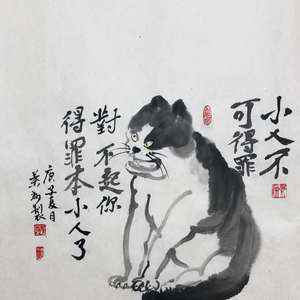 小人不
可得罪
對不起你
得罪本小人了
庚子夏月